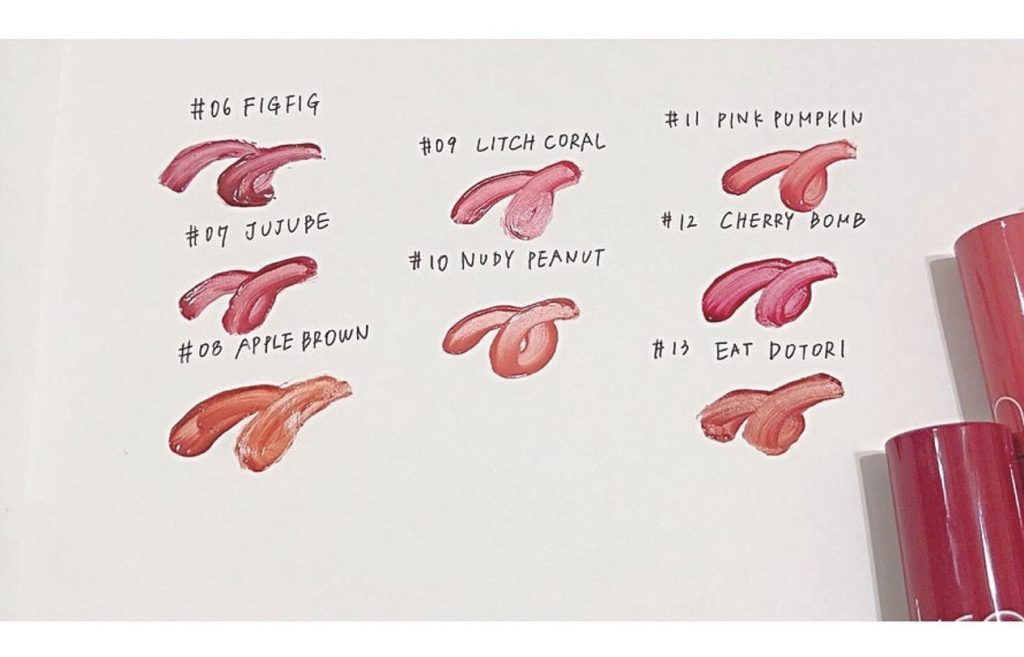 #06 FIGFIG
#07 JUJUBE
#08 APPLE BROWN
#09 LITCH CORAL
#10 NUDY PEANUT
#11 PINK PUMPKIN
#12 CHERRY BOMB
#13 EAT DOTORI